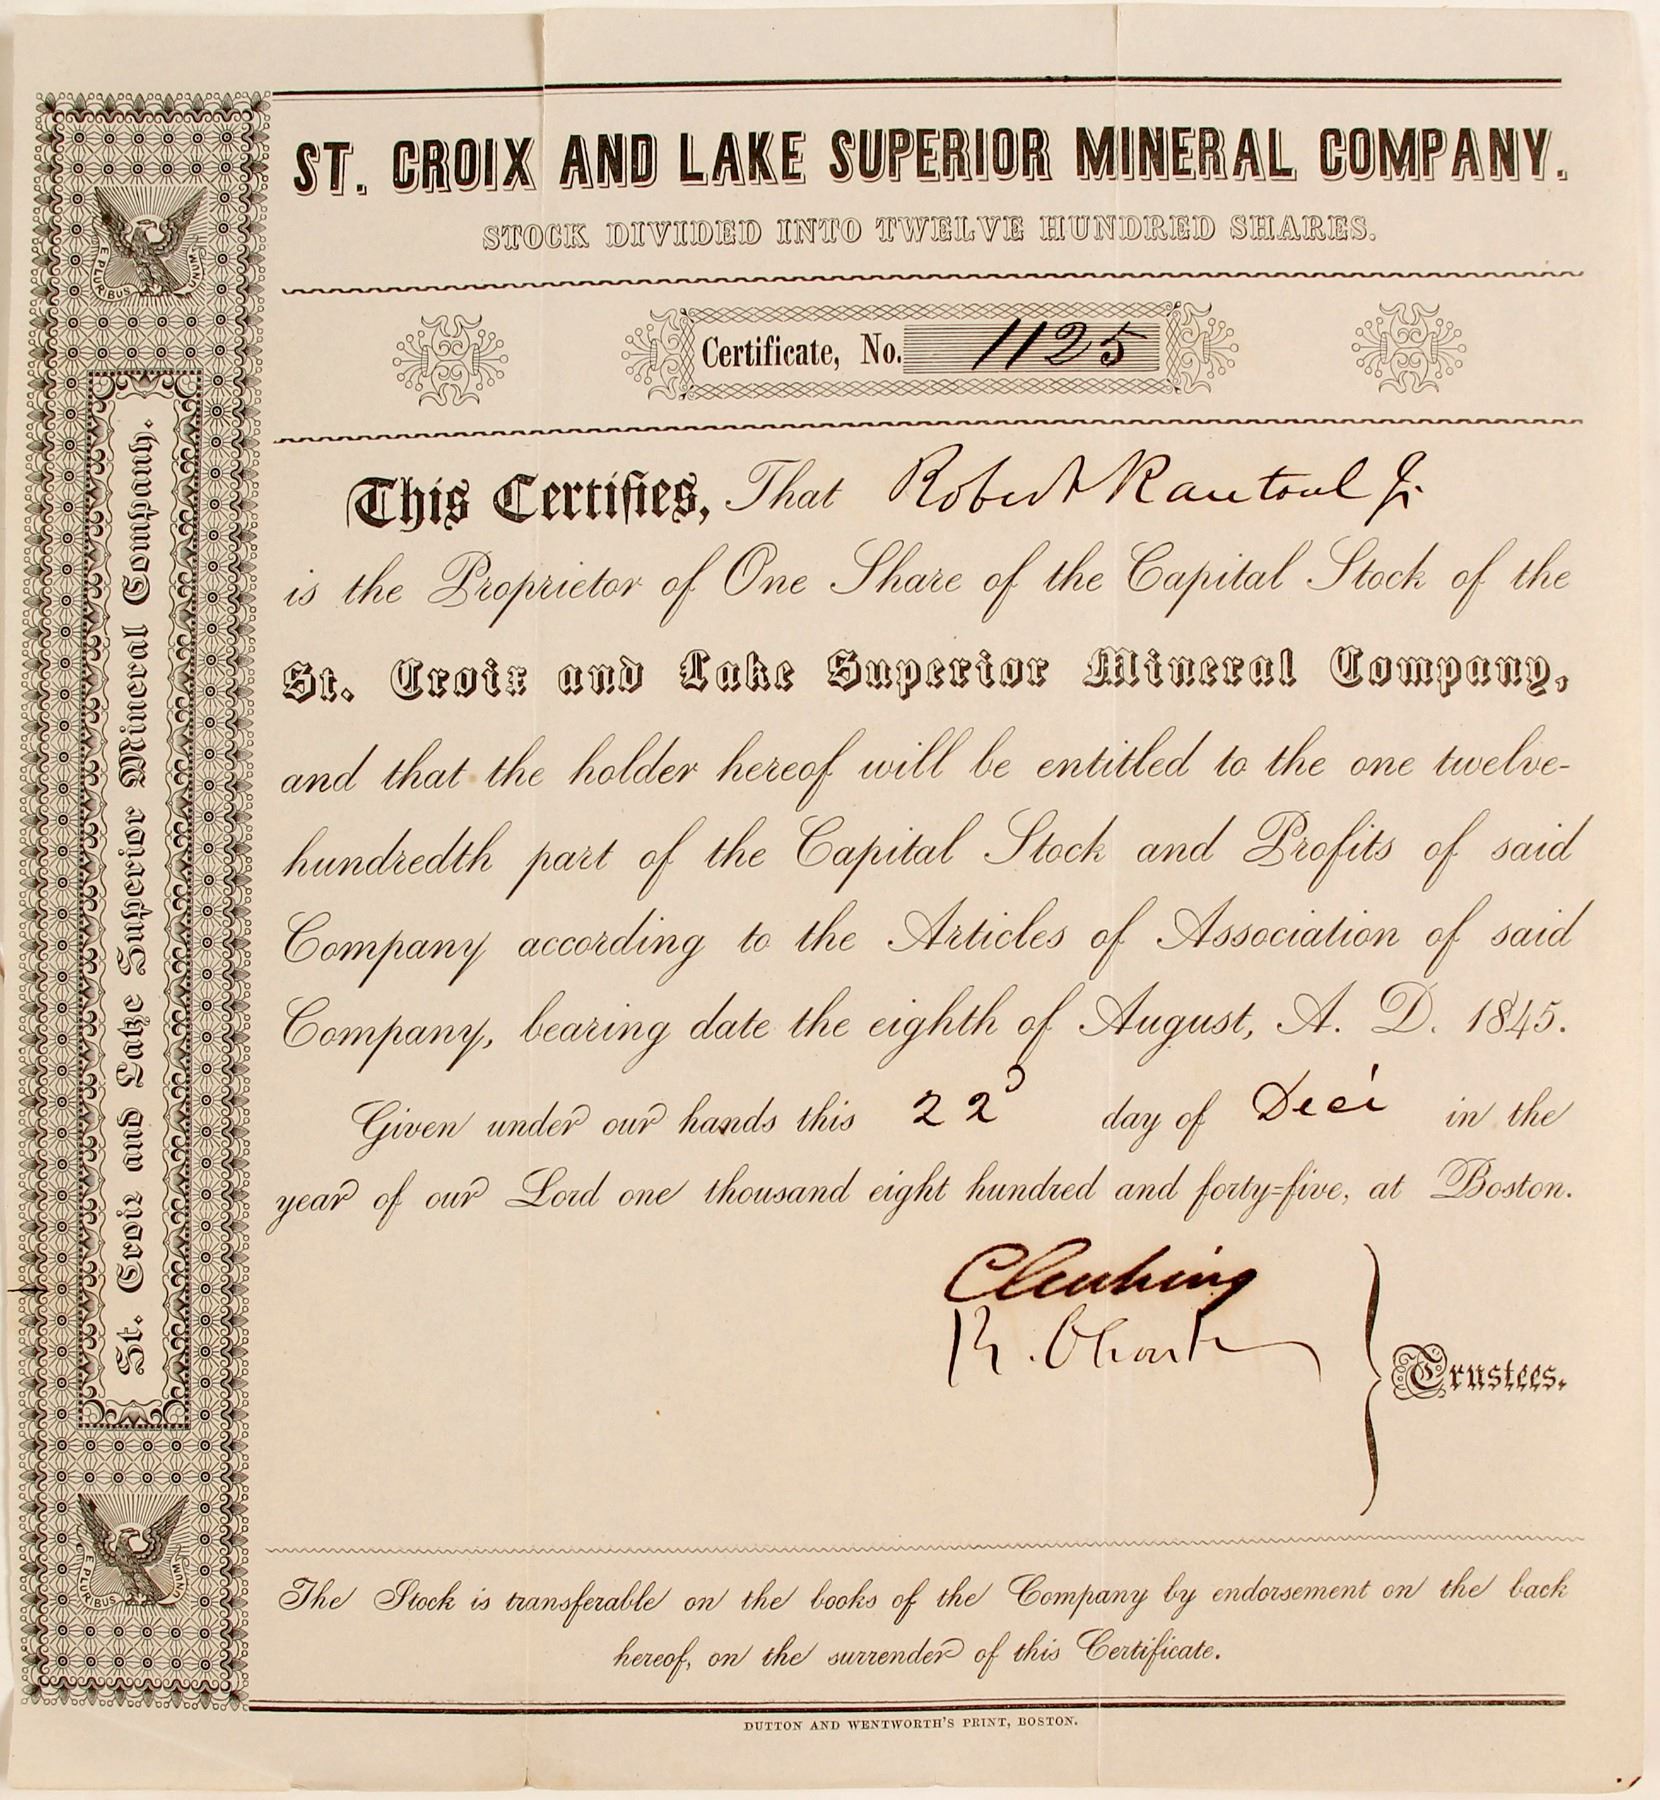 ST. CROIX AND LAKE SUPERIOR MINERAL COMPANY.
STOCK DIVIDED INTO TWELVE HUNDRED SHARES.
Certificate, No. 1125
This Certifies, That Robert Rantoul Jr.
is the Proprietor of One Share of the Capital Stock of the
St. Croix and Lake Superior Mineral Company,
and that the holder hereof will be entitled to the one twelve-
hundredth part of the Capital Stock and Profits of said
Company according to the Articles of Association of said
Company, bearing date the eighth of August, A. D. 1845.
Given under our hands this 22d day of Dec. in the
year of our Lord one thousand eight hundred and forty-five, at Boston.
C Cushing
R. Choate
Trustees.
The Stock is transferable on the books of the Company by endorsement on the back
hereof, on the surrender of this Certificate.
DUTTON AND WENTWORTH'S PRINT, BOSTON.
St. Croix and Lake Superior Mineral Company.
E PLURIBUS UNUM
E PLURIBUS UNUM